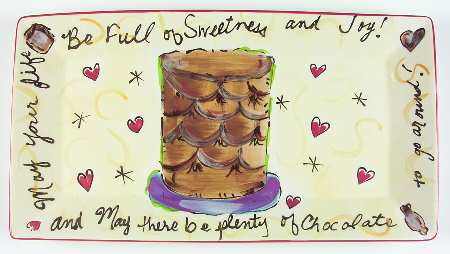 May Your Life
Be Full of Sweetness and Joy!
and May there be plenty of Chocolate
to go around!